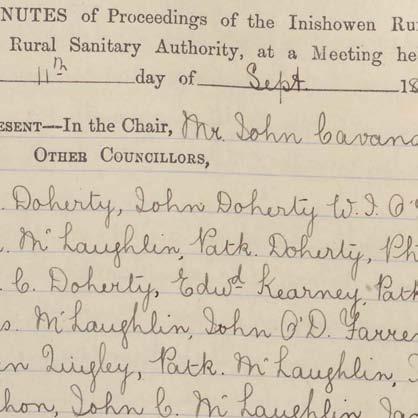 NUTES of Proceedings of the Inishowen Ru
Rural Sanitary Authority, at a Meeting he
11th day of Sept. 18
ESENT—In the Chair, Mr. John Cavana
OTHER COUNCILLORS,
. Doherty, John Doherty W. J. O'
. McLaughlin, Patk. Doherty, Ph
. C. Doherty, Edwd Kearney, Patk
s. McLaughlin, John O'D. Farre
n Quigley, Patk. McLaughlin,
hon, John C. McLaughlin, Ja